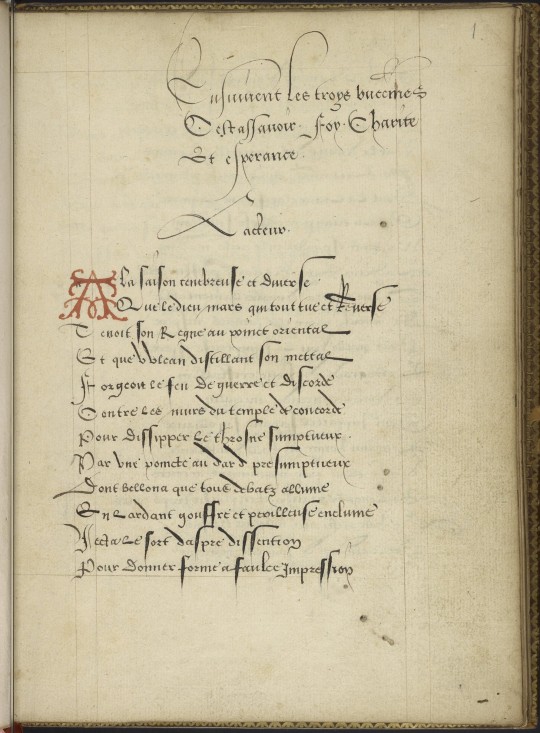 1
Ensuivent les troys buccines
Cest assavoir . Foy . Charite
Et esperance .
Lacteur .
A la saison tenebreuse et diverse
Que le dieu mars qui tout tue et Reverse
Tenoit son Regne au poinct oriental
Et que Vulcan distillant son mettal
Forgeoit le feu de guerre et discorde
Contre les murs du temple de concorde
Pour dissipper le throsne sumptueux .
Par une poincte au dard presumptueux
Dont bellona que tous debatz allume
En lardant gouffre et perilleuse enclume
Jecta le sort daspre dissention
Pour donner forme a faulce Impression